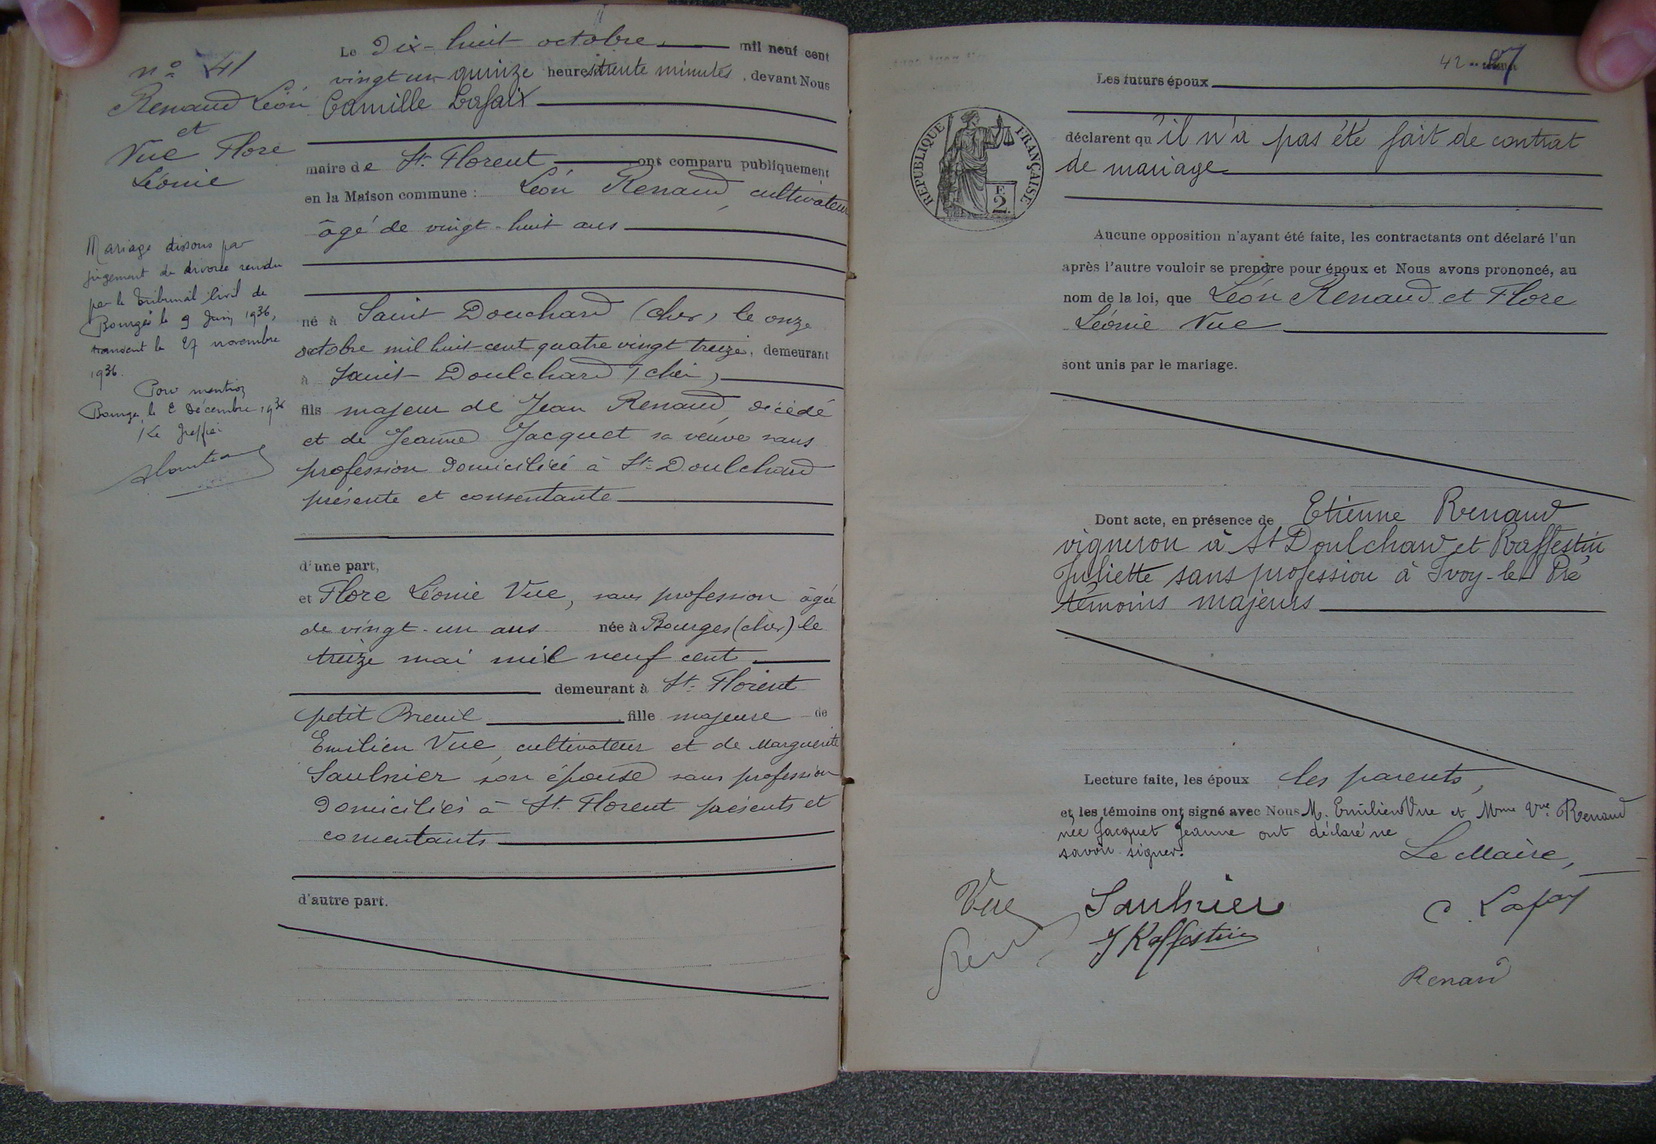 n° 41
Renaud Léon
et
Vue Flore
Léonie
Mariage dissous par
jugement de divorce rendu
par le Tribunal Civil de
Bourges le 9 Juin 1936,
transcrit le 27 novembre
1936.
Pour mention
Bourges, le 2 Décembre 1936
Le Greffier
Le Dix-huit octobre mil neuf cent
vingt un quinze heures trente minutes, devant Nous
Camille Lafaix
maire de St. Florent ont comparu publiquement
en la Maison commune : Léon Renaud, cultivateur
âgé de vingt-huit ans
né à Saint Douchard (cher) le onze
octobre mil huit-cent quatre vingt treize, demeurant
à Saint Doulchard (cher)
fils majeur de Jean Renaud, décédé
et de Jeanne Jacquet sa veuve sans
profession domiciliée à St. Doulchard
présente et consentante
d'une part,
et Flore Léonie Vue, sans profession âgée
de vingt-un ans née à Bourges (cher) le
treize mai mil neuf cent
demeurant à St. Florent
petit Breuil fille majeure de
Emilien Vue cultivateur et de Marguerite
Saulnier son épouse sans profession
domiciliés à St. Florent présents et
consentants
d'autre part.
42
Les futurs époux
RÉPUBLIQUE FRANÇAISE
F.
2.
déclarent qu'il n'a pas été fait de contrat
de mariage
Aucune opposition n'ayant été faite, les contractants ont déclaré l'un
après l'autre vouloir se prendre pour époux et Nous avons prononcé, au
nom de la loi, que Léon Renaud et Flore
Léonie Vue
sont unis par le mariage.
Dont acte, en présence de Etienne Renaud
vigneron à St Doulchard et Raffestin
Juliette sans profession à Ivoy-le-Pré
témoins majeurs
Lecture faite, les époux les parents,
et les témoins ont signé avec Nous M. Emilien Vue et Mme Vve Renaud
née Jacquet Jeanne ont déclaré ne
savoir signer.
Le Maire,
Vue
Saulnier
C. Lafaix
J Raffestin
Renaud